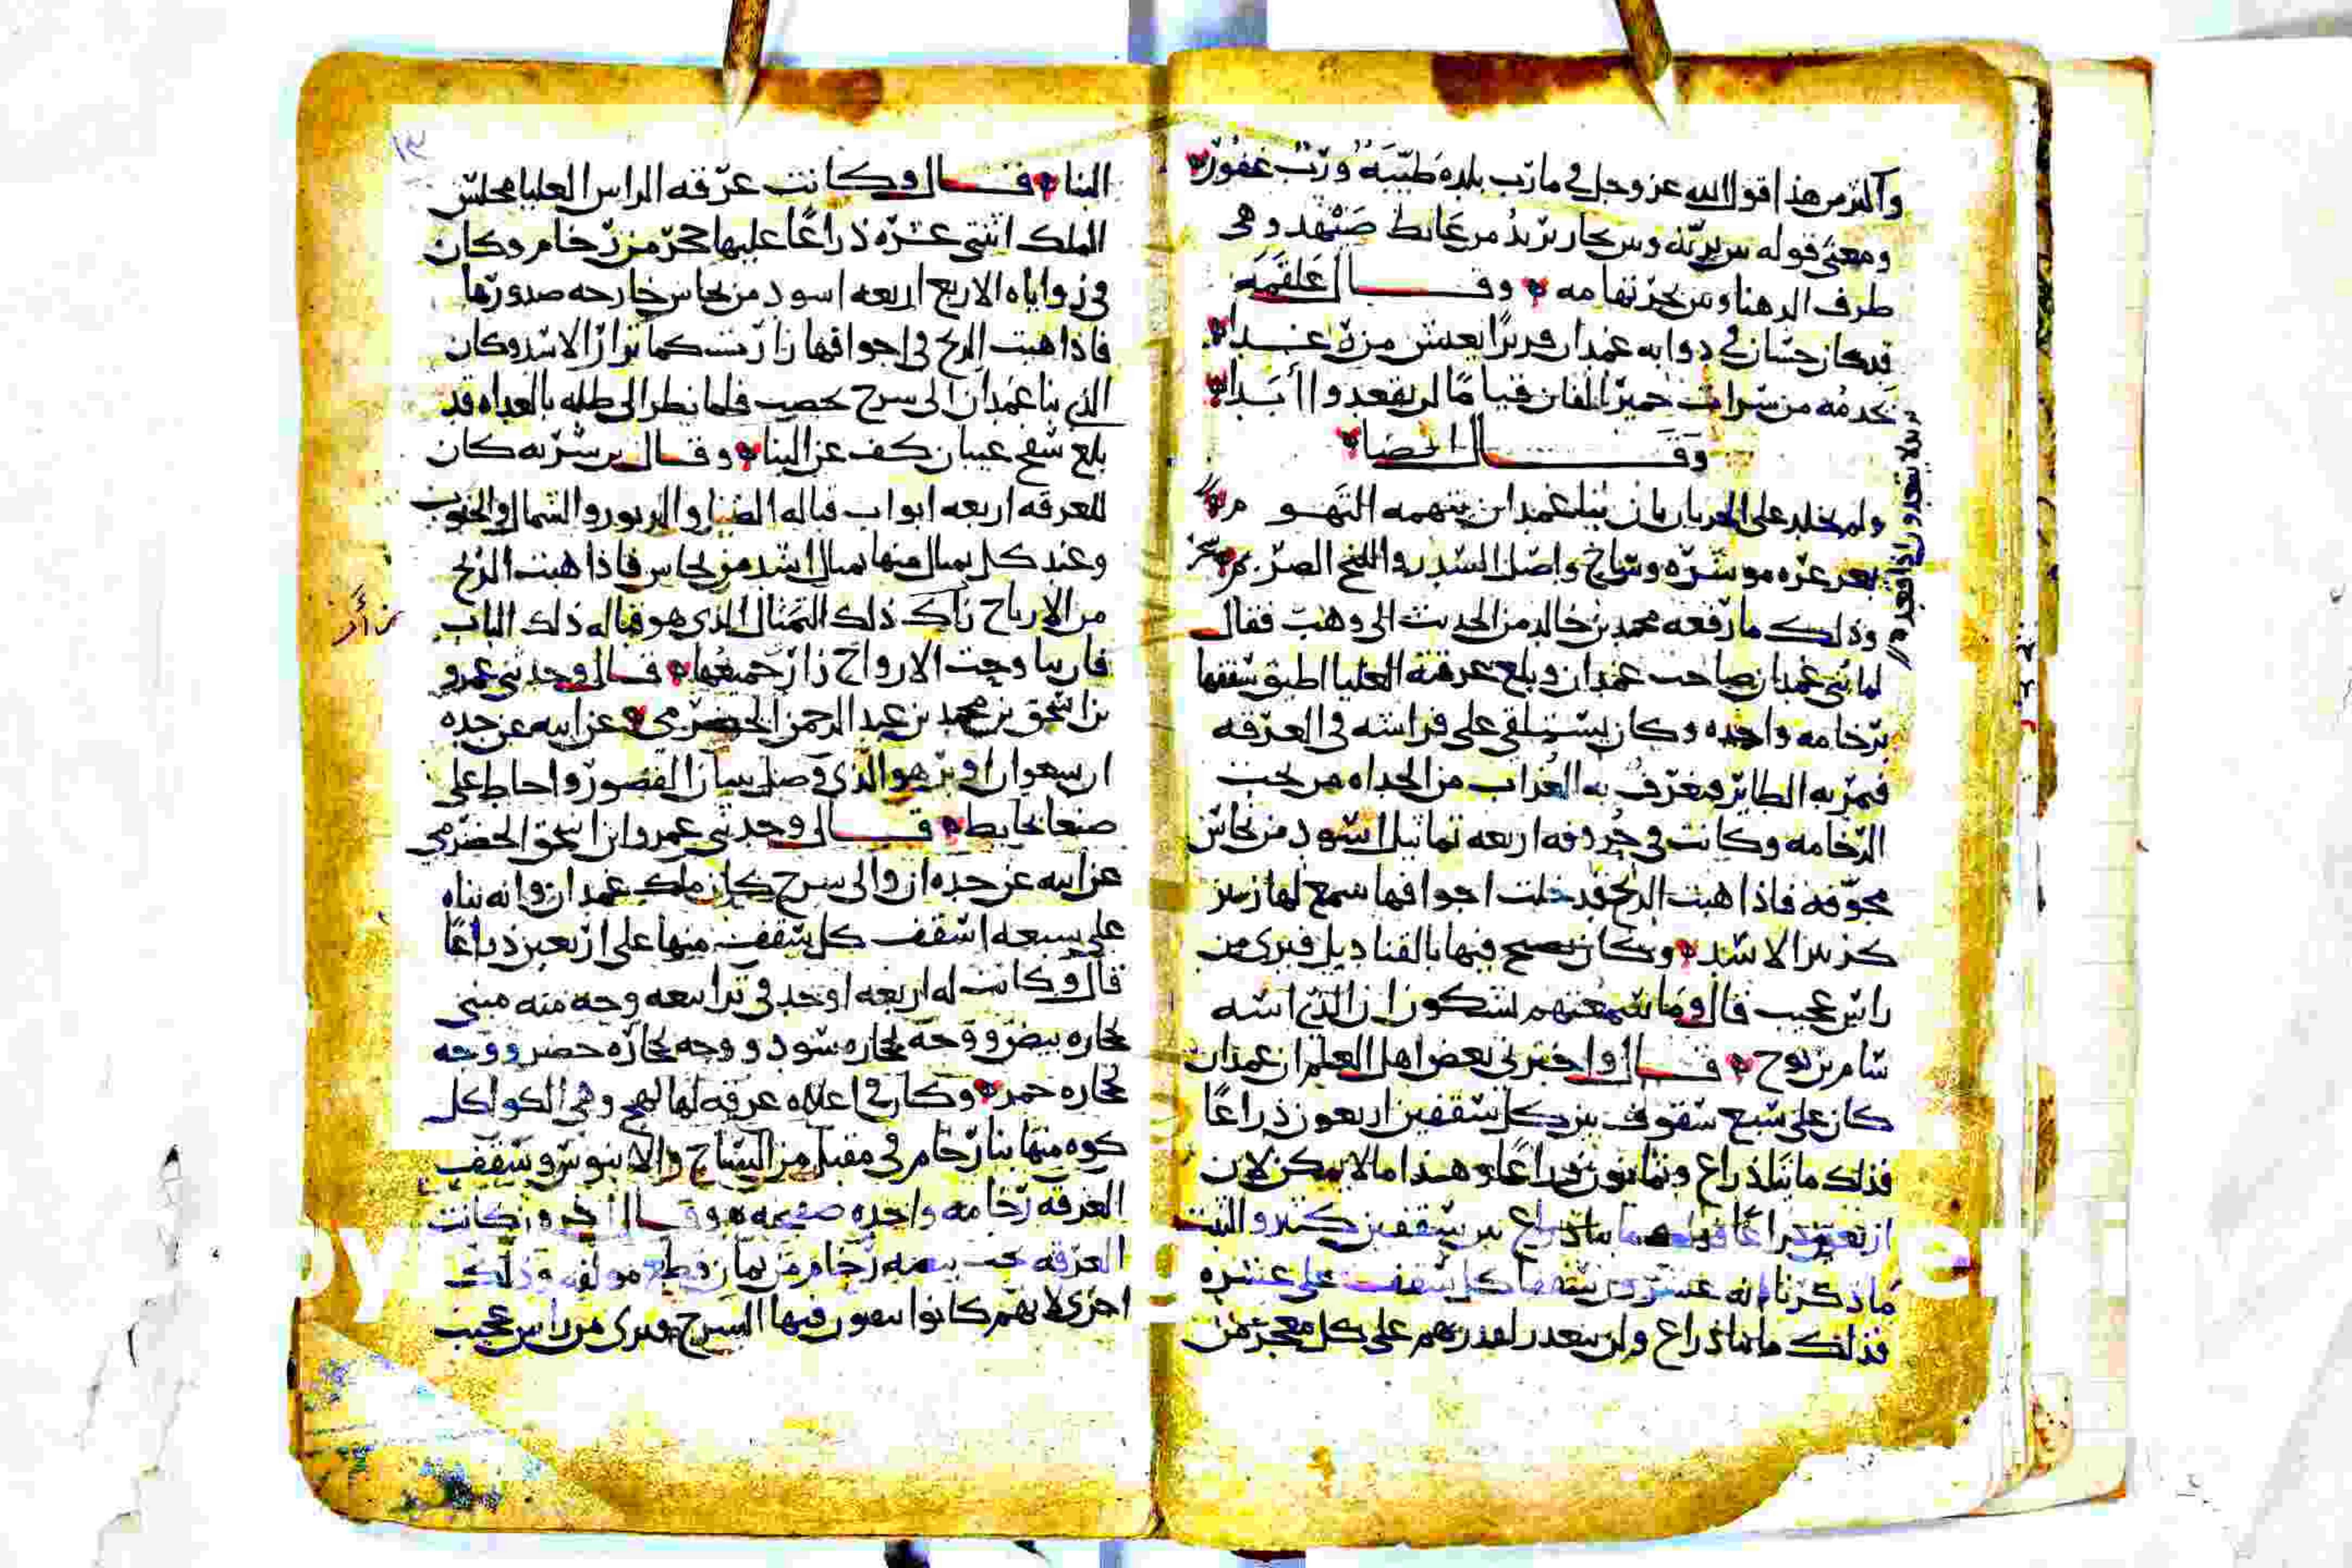 وآكثر من هذا قول الله عز وجل في مارب بلده طَيّبَةُ وربّ غفُورُ
ومعنى قوله بين بريّه وبين بحار يريدُ من غايط صَيْهَد وهي
طرف الدهنا وبين بحر تهامه وقال عَلقَمَه
قد كان حسّان في دوابه غمدان قريرًا يعيش مزة غدا
تخدمُه من سرات حميرَ الفان قيامًا لن يقعدوا أبَدا
وقَال ايضا
ولم يخلد على الحدبان بان بنا غمدان ينهمه النهو م
بعرعره موسره وساج واصل السدر واللخخ الصر
وذلك ما رفعه محمد بن خالد من الحديث الى وهب فقال
لما بنى غمدان صاحب غمدان وبلغ غرفته العليا اطبق سقفها
برخامه واحده وكان يستلقي على فراشه في الغرفه
فيمر به الطاير فيعرف به الغُراب من الحداه من تحت
الرخامه وكانت في حُروفه اربعه تماثيل اسود من نحاس
مجوّفه فاذا هبت الريح فدخلت اجوافها سمع لها زئير
كزئير الاسد وكان يصبح فيها بالقناديل فترى من
راس عجيب قال وما سمعتهم يشكون ان الذي اسسه
سام بن نوح قال واخبرني بعض اهل العلم ان غمدان
كان على سبع سقوف بين كل سقفين اربعون ذراعًا
فذلك مائتا ذراع وثمانون ذراعًا وهذا ما لا يمكن لان
اربعين ذراعًا بين سقفين كثير والثبت
ما ذكرنا انه عشرون سقفا كل سقف على عشره
فذلك مائتا ذراع ولن يتعذر لقدرتهم على كل معجز من
بدلا يقعدوا اذا قعد
١٣
البنا قال وكانت غرفه الراس العليا مجلس
الملك اثنتي عشره ذراعًا عليها حجر من رخام وكان
في زواياه الاربع اربعه اسود من نحاس خارجه صدورها
فاذا هبت الريح في اجوافها زارت كما يزار الاسد وكان
الذي بنا غمدان الى سرح يحصب فلما نظر الى ظله بالغداه قد
بلغ سفح عيبان كف عن البنا وقال بن شريه كان
للغرفه اربعه ابواب قباله الصبا والدبور والشمال والجنوب
وعند كل تمثال منها تمثال اسد من نحاس فاذا هبت الريح
من الارياح زاك ذلك التمثال الذي هو قباله ذلك الباب
زأر
فان تناوحت الارواح زار جميعها قال وحدثني عمرو
بن اسحق بن محمد بن عبد الرحمن الحضرمي عن ابيه عن جده
ان سعوان اوتر هو الذي وصل بنيان القصور واحاط على
صنعا بحايط قال وحدثني عمرو ابن اسحق الحضرمي
عن ابيه عن جده ان والى سرح كان ملك غمدان وانه بناه
على سبعه اسقف كل سقف منها على اربعين ذراعًا
قال وكانت له اربعه اوجه في ترابيعه وجه منه مبنى
بحجاره بيض ووجه بحجاره سود ووجه بحجاره خضر ووجه
بحجاره حمر وكان في اعلاه غرفه لها لهج وهي الكوا كل
كوه منها بنا رخام في مقيل من الساج والابنوس وسقف
الغرفه رخامه واحده صفيحه وقال اخرون كانت
الغرفه تحت بيضه رخام من ثمان قطع مولفه وذلك
احرى لانهم كانوا يثقبون فيها السرج فترى من راس عجيب